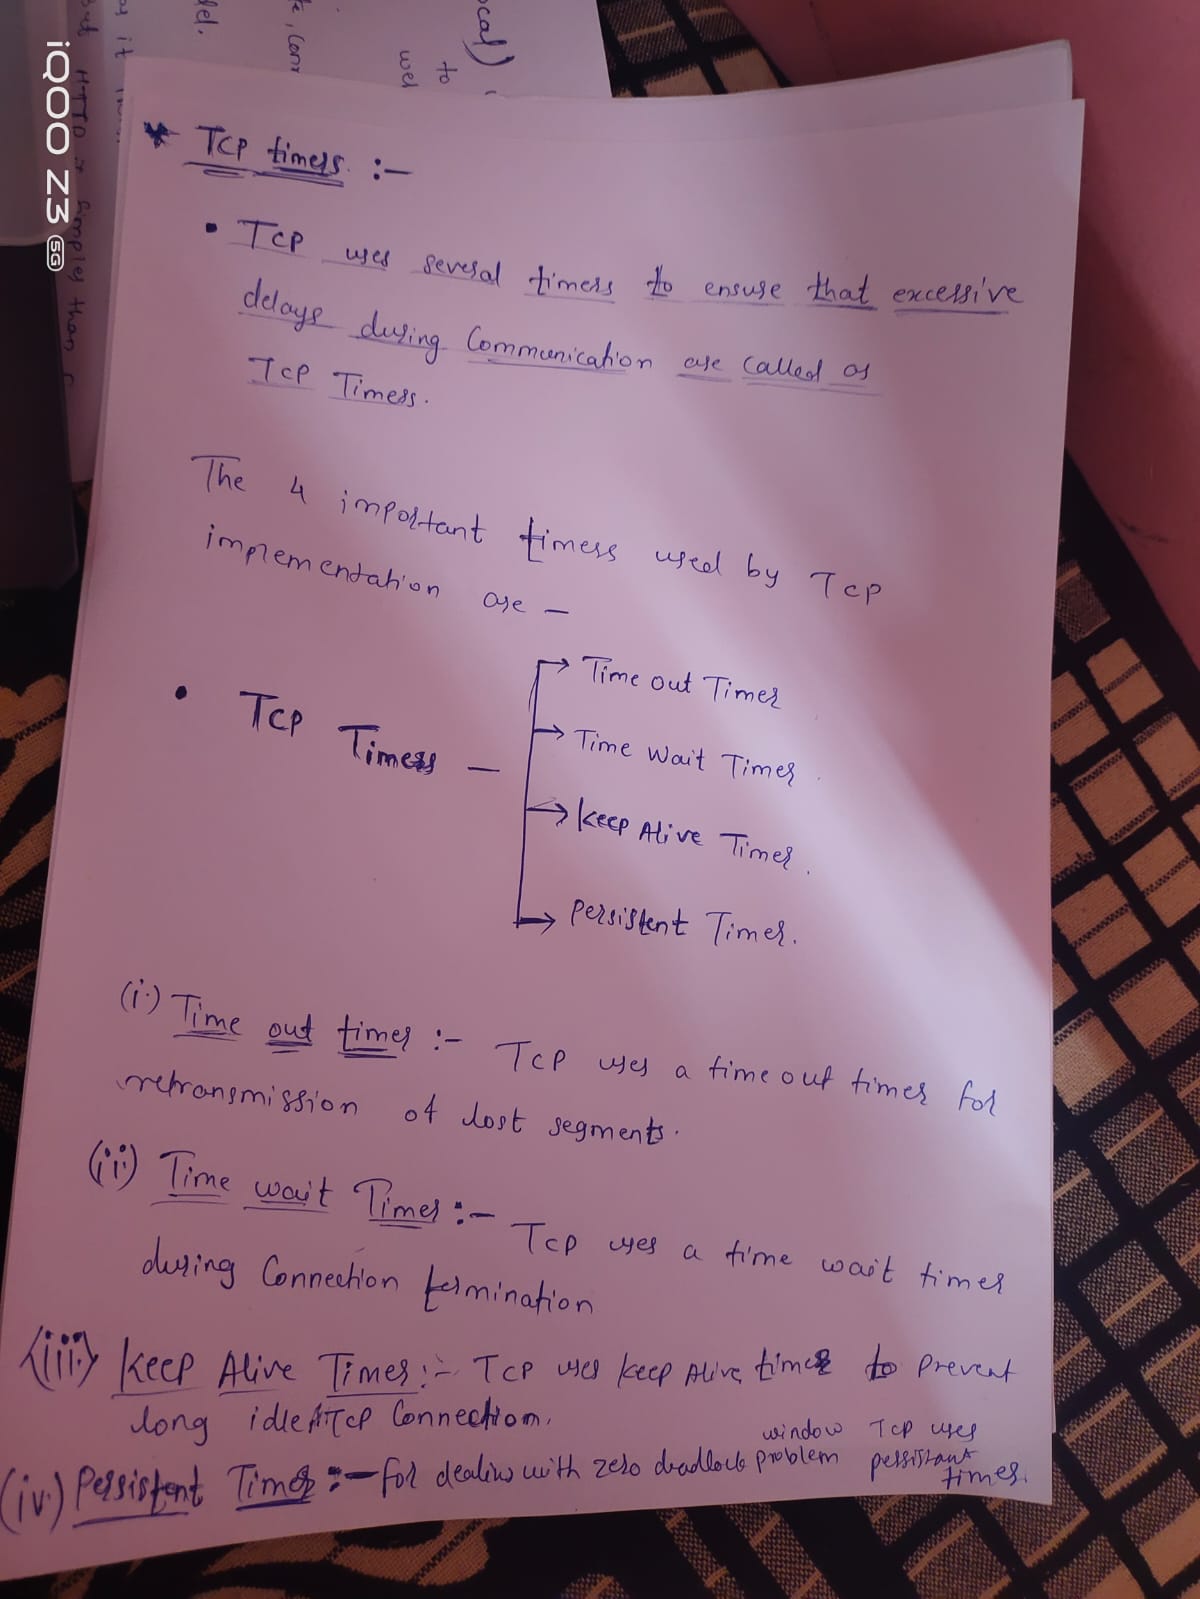 * TCP timers :-
• TCP uses several timers to ensure that excessive
delays during Communication are called as
TCP Timers.
The 4 important timers used by TCP
implementation are —
• TCP Timers —
Time out Timer
Time Wait Timer
Keep Alive Timer
Persistent Timer.
(i) Time out timer :- TCP uses a time out timer for
retransmission of lost segments.
(ii) Time wait Timer :- TCP uses a time wait timer
during Connection termination
(iii) Keep Alive Timer :- TCP uses Keep Alive timer to prevent
long idle TCP Connection.
(iv) Persistent Timer :- for dealing with zero deadlock window problem TCP uses persistant timer.
iQOO Z3 5G
ocal)
to
del.
it
HTTP is simples than